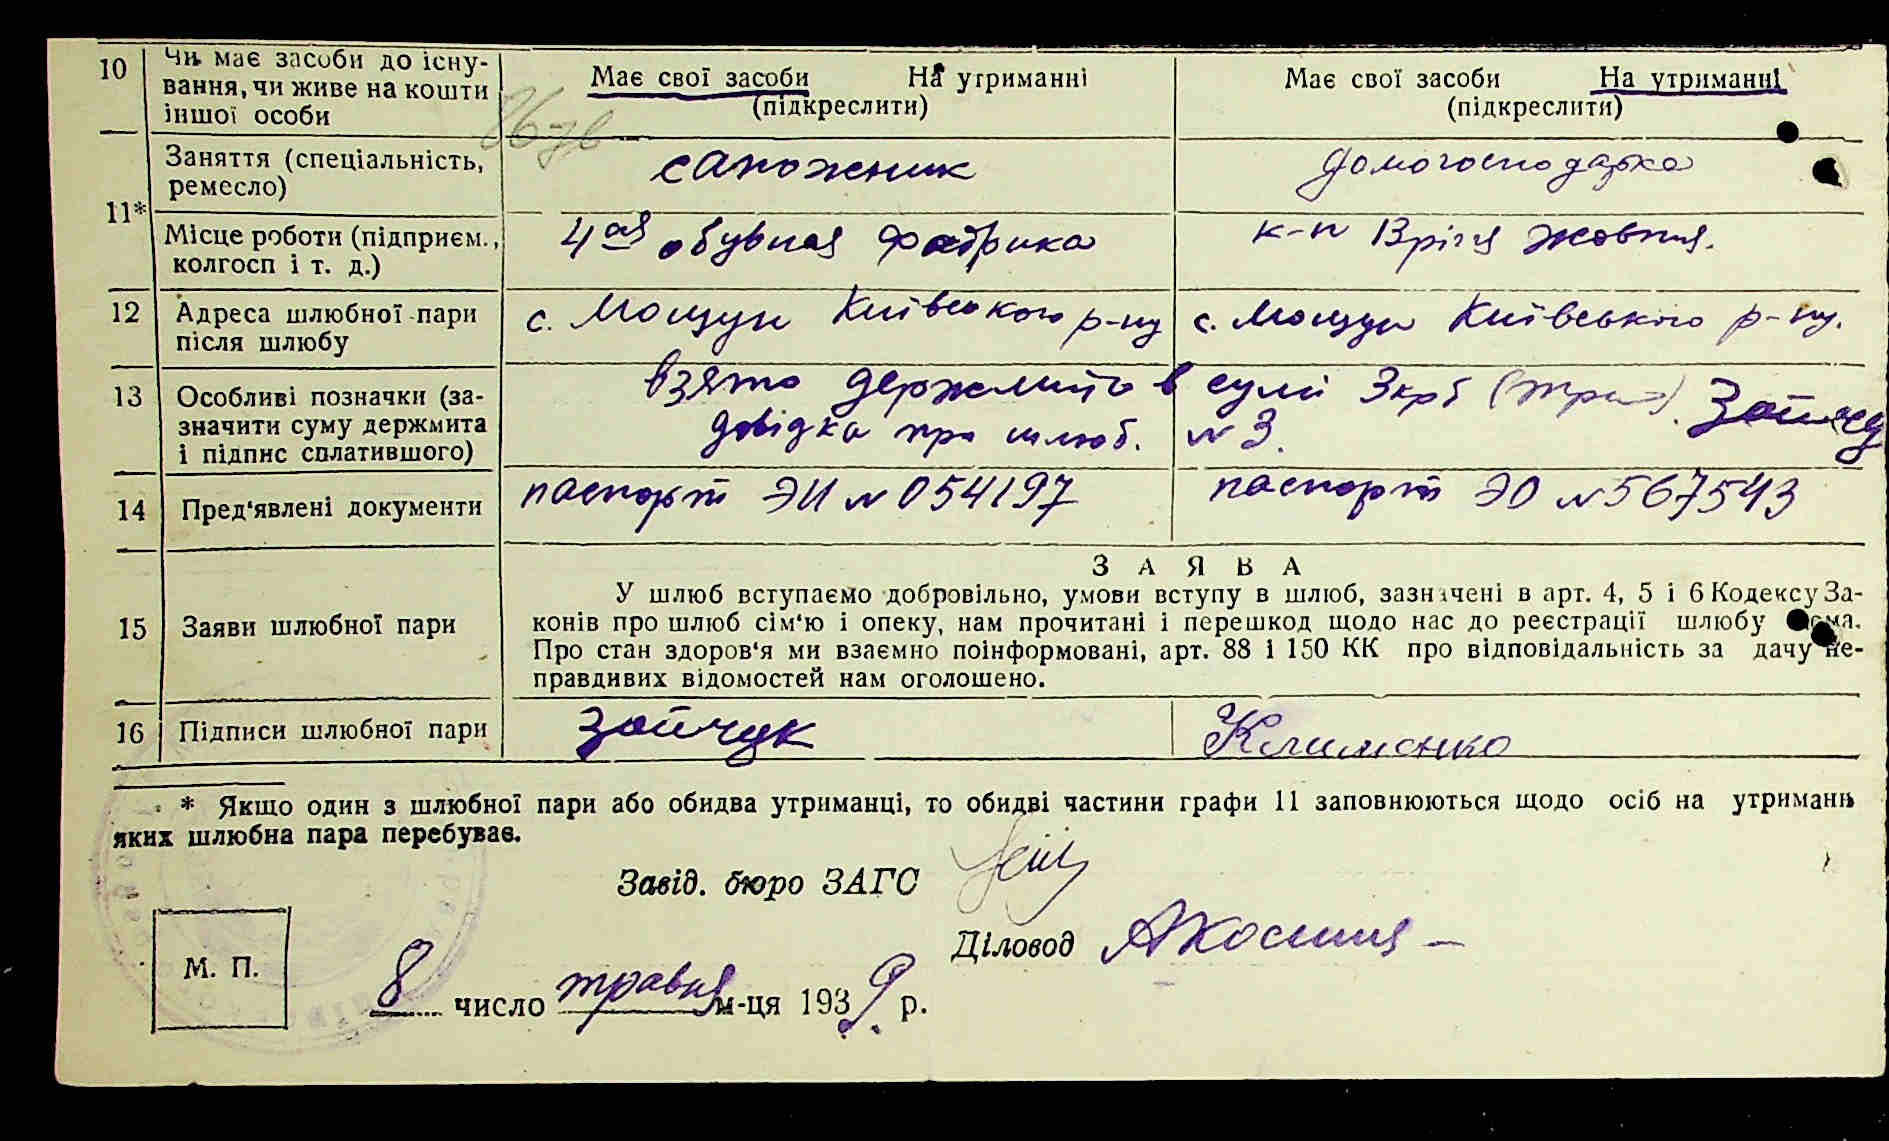 10 Чи має засоби до існу- Має свої засоби На утриманні Має свої засоби На утриманні
вання, чи живе на кошти (підкреслити) (підкреслити)
іншої особи
Заняття (спеціальність, сапожник домогосподарка
ремесло)
11*
Місце роботи (підприєм., 4ая обувная фабрика к-п 13 річчя жовтня.
колгосп і т. д.)
12 Адреса шлюбної пари с. Мощун Київського р-ну с. Мощун Київського р-ну.
після шлюбу
13 Особливі позначки (за- взято держмито в сумі 3 крб (три)
значити суму держмита довідка про шлюб. № 3.
і підпис сплатившого)
14 Пред'явлені документи паспорт ЭИ № 054197 паспорт ЭО № 567543
ЗАЯВА
У шлюб вступаємо добровільно, умови вступу в шлюб, зазначені в арт. 4, 5 і 6 Кодексу За-
15 Заяви шлюбної пари конів про шлюб сім'ю і опеку, нам прочитані і перешкод щодо нас до реєстрації шлюбу нема.
Про стан здоров'я ми взаємно поінформовані, арт. 88 і 150 КК про відповідальність за дачу не-
правдивих відомостей нам оголошено.
16 Підписи шлюбної пари Зайчук Клименко
* Якщо один з шлюбної пари або обидва утриманці, то обидві частини графи 11 заповнюються щодо осіб на утриманні
яких шлюбна пара перебуває.
Завід. бюро ЗАГС
Діловод
М. П.
8 число травня м-ця 1939 р.